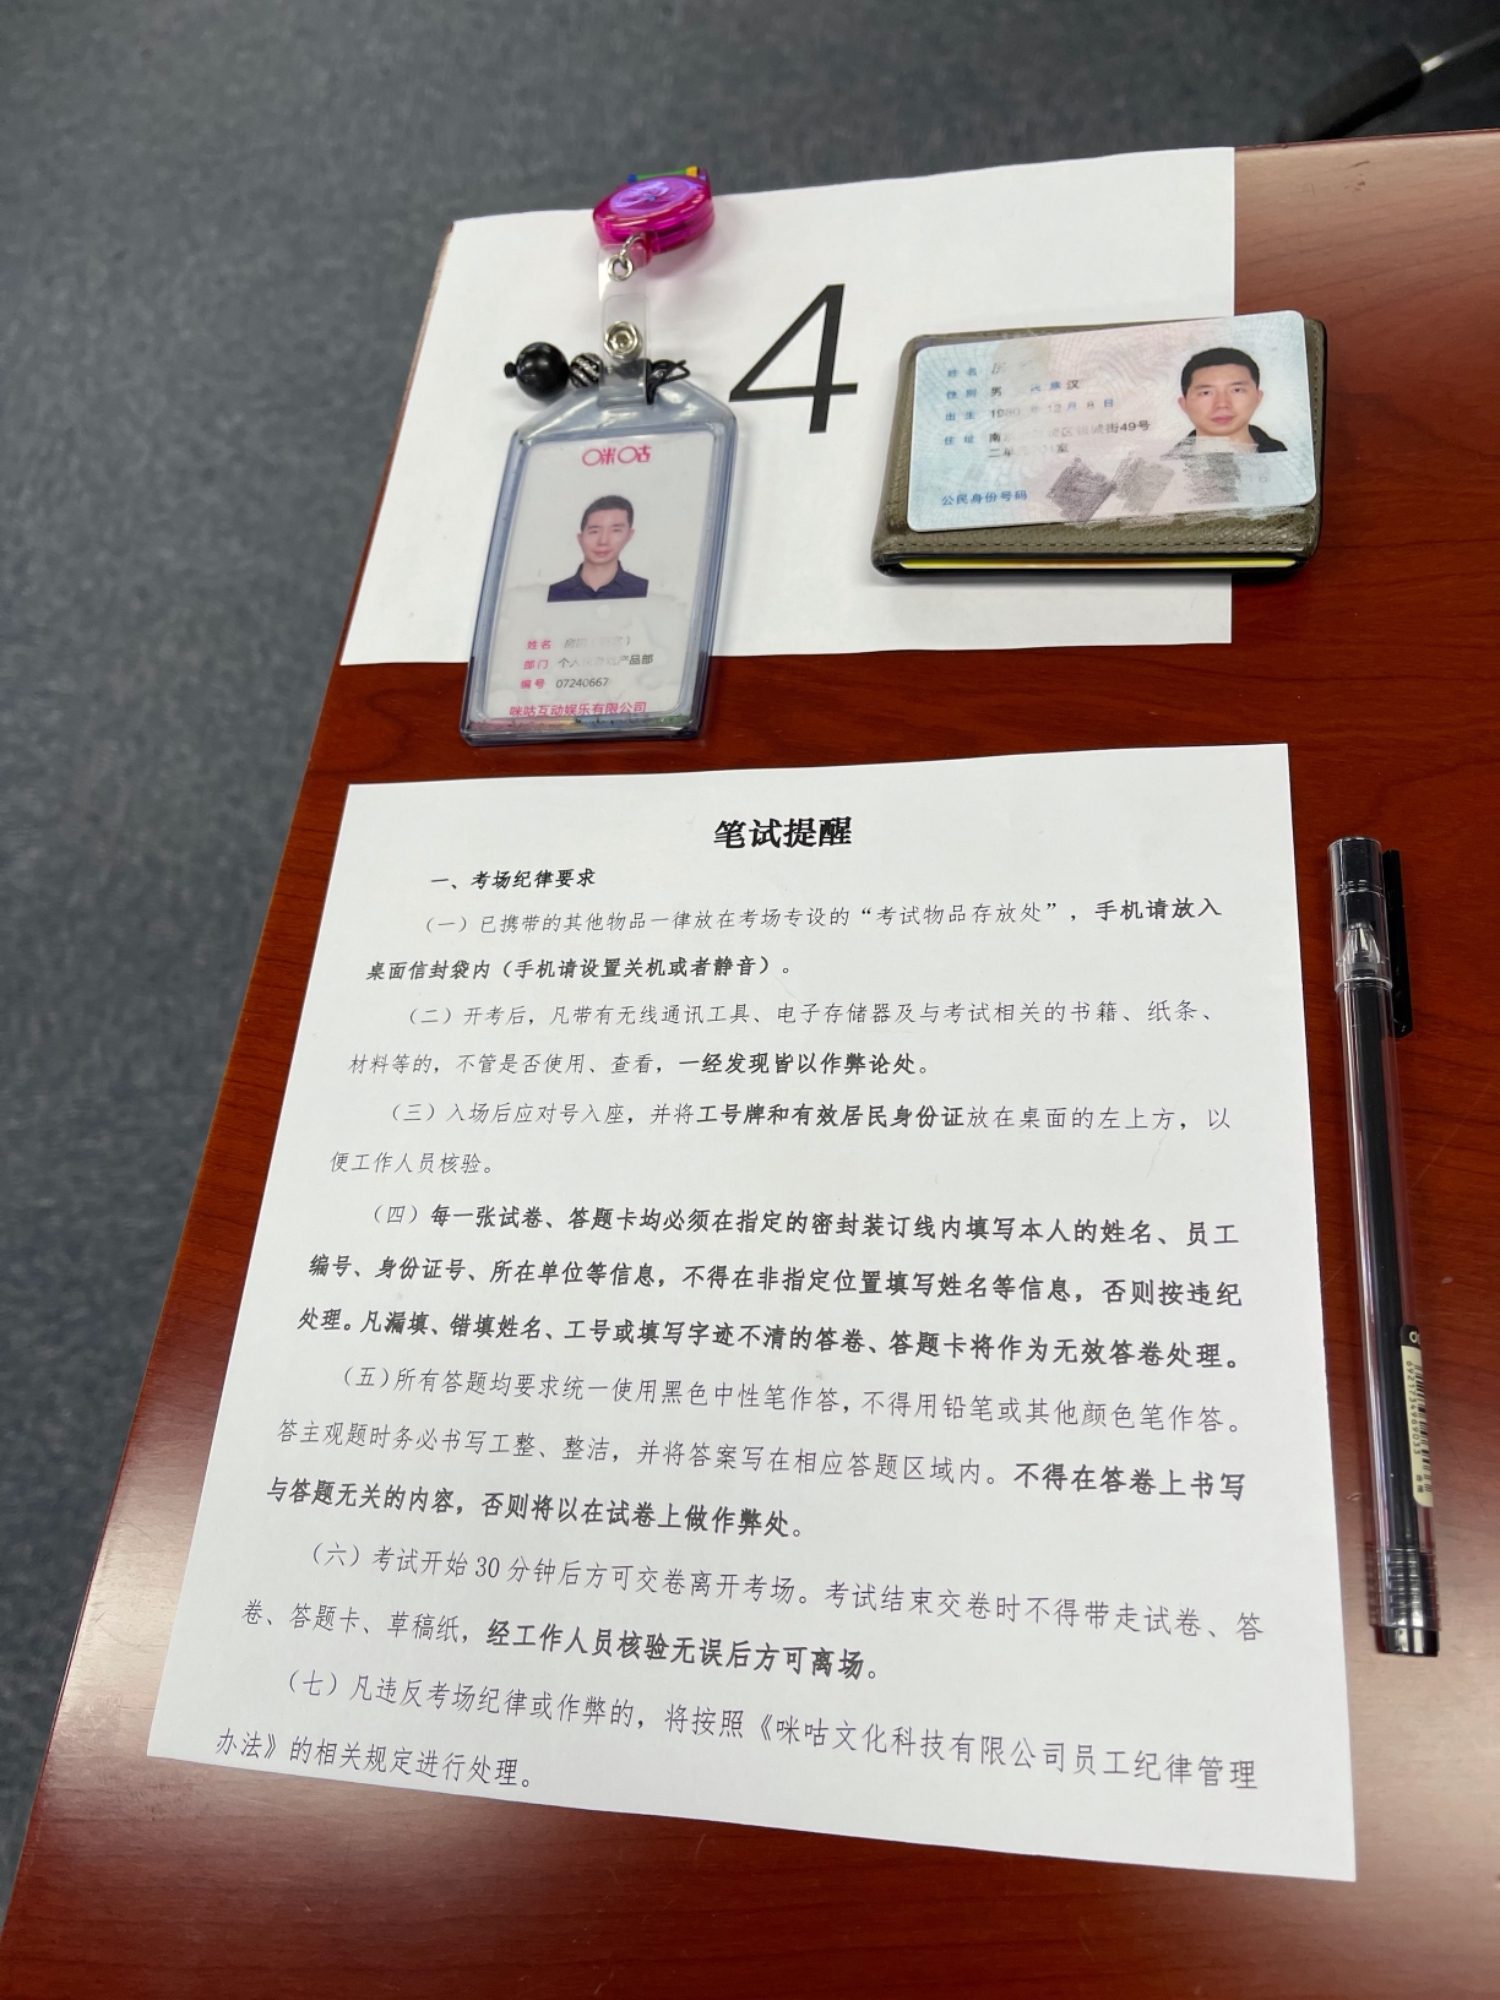 4
咪咕
姓名
部门 个人 产品部
编号 07240667
咪咕互动娱乐有限公司
姓名
性别 男 民族 汉
出生 年12月8日
住址 街49号
公民身份号码
笔试提醒
一、考场纪律要求
（一）已携带的其他物品一律放在考场专设的“考试物品存放处”，手机请放入
桌面信封袋内（手机请设置关机或者静音）。
（二）开考后，凡带有无线通讯工具、电子存储器及与考试相关的书籍、纸条、
材料等的，不管是否使用、查看，一经发现皆以作弊论处。
（三）入场后应对号入座，并将工号牌和有效居民身份证放在桌面的左上方，以
便工作人员核验。
（四）每一张试卷、答题卡均必须在指定的密封装订线内填写本人的姓名、员工
编号、身份证号、所在单位等信息，不得在非指定位置填写姓名等信息，否则按违纪
处理。凡漏填、错填姓名、工号或填写字迹不清的答卷、答题卡将作为无效答卷处理。
（五）所有答题均要求统一使用黑色中性笔作答，不得用铅笔或其他颜色笔作答。
答主观题时务必书写工整、整洁，并将答案写在相应答题区域内。不得在答卷上书写
与答题无关的内容，否则将以在试卷上做作弊处。
（六）考试开始30分钟后方可交卷离开考场。考试结束交卷时不得带走试卷、答
卷、答题卡、草稿纸，经工作人员核验无误后方可离场。
（七）凡违反考场纪律或作弊的，将按照《咪咕文化科技有限公司员工纪律管理
办法》的相关规定进行处理。